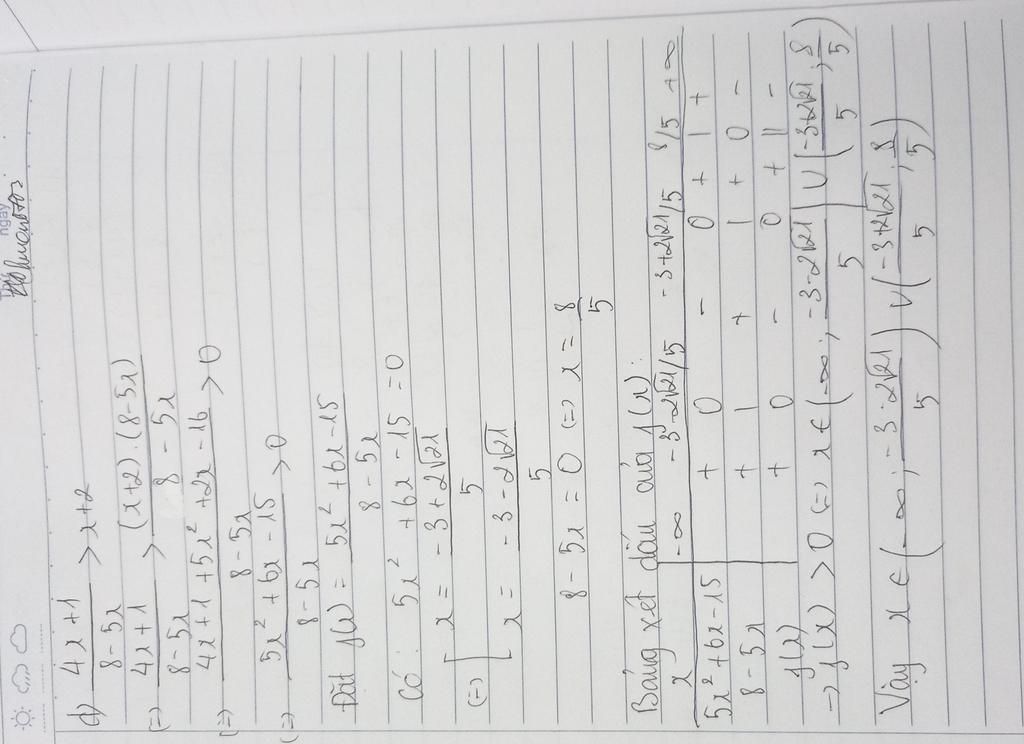 d) 4x+1/8-5x > x+2
(=) 4x+1/8-5x > (x+2).(8-5x)/8-5x
(=) 4x+1+5x²+2x-16/8-5x > 0
(=) 5x²+6x-15/8-5x > 0
Đặt f(x) = 5x²+6x-15/8-5x
Có: 5x²+6x-15=0
(=) [ x = -3+2√21/5
x = -3-2√21/5
8-5x=0 (=) x = 8/5
Bảng xét dấu của f(x):
x -∞ -3-2√21/5 -3+2√21/5 8/5 +∞
5x²+6x-15 + 0 - 0 + | +
8-5x + | + | + 0 -
f(x) + 0 - 0 + || -
→ f(x) > 0 (=) x ∈ (-∞; -3-2√21/5) ∪ (-3+2√21/5; 8/5)
Vậy x ∈ (-∞; -3-2√21/5) ∪ (-3+2√21/5; 8/5)